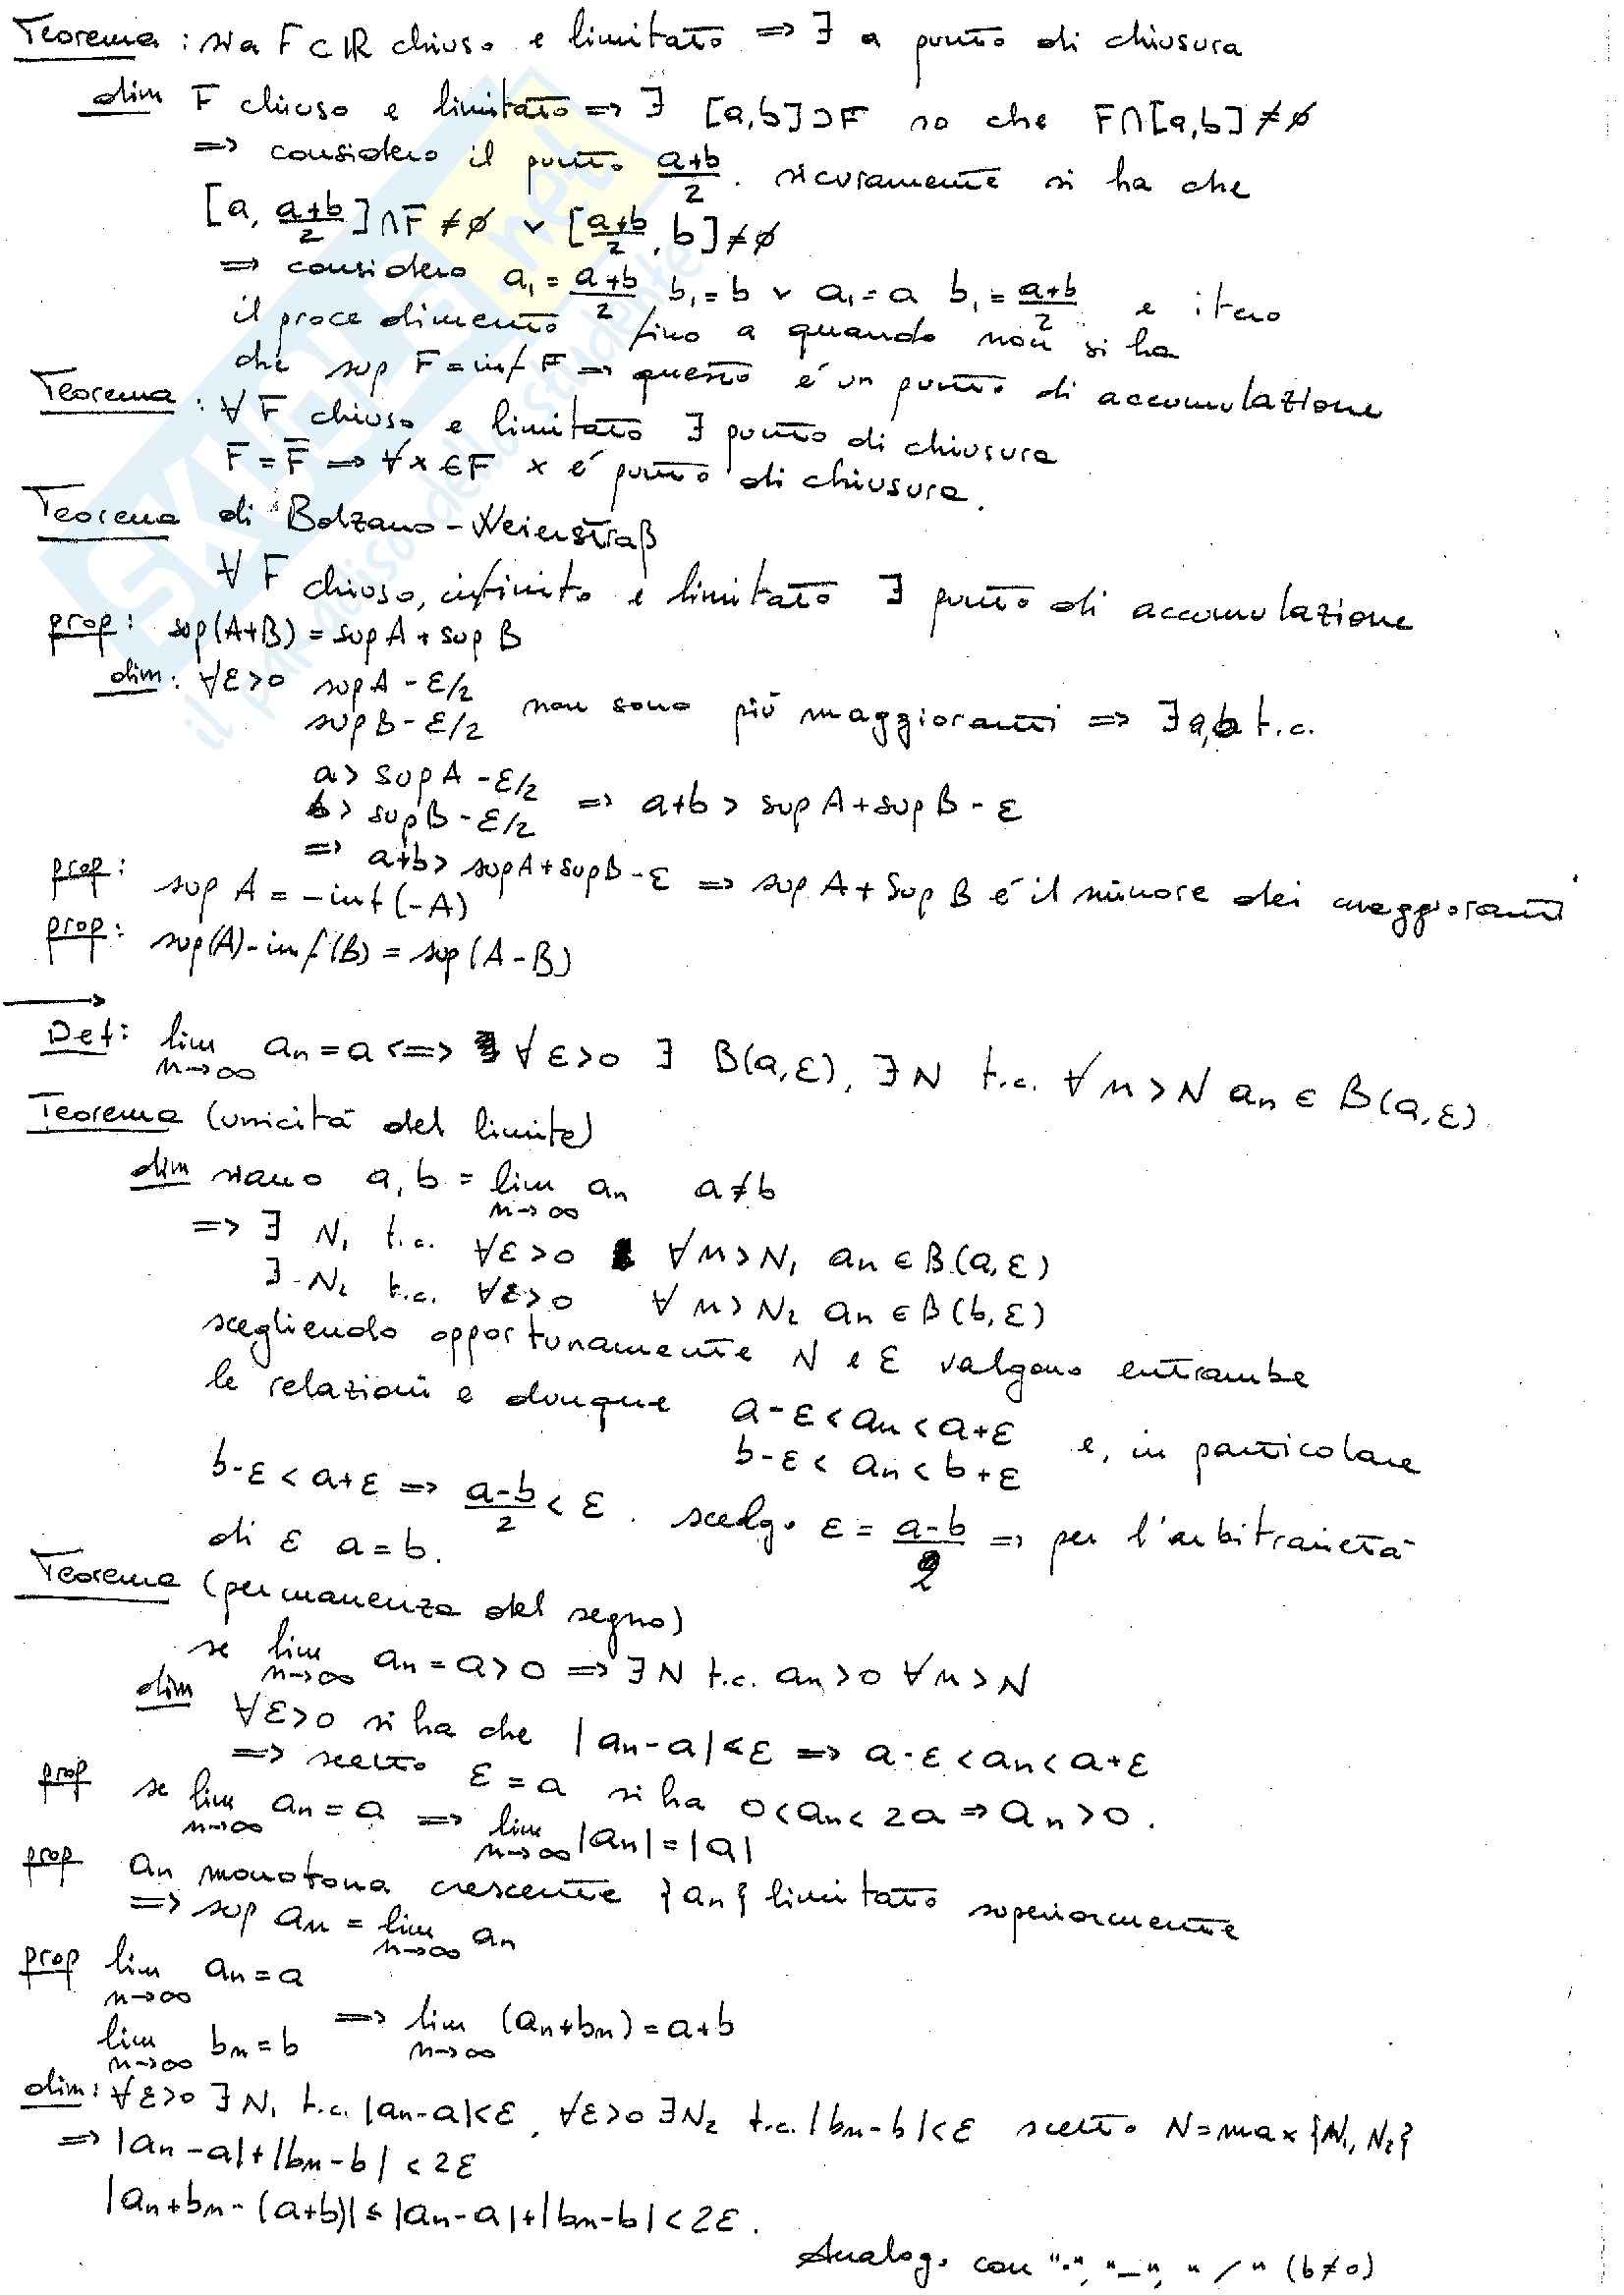 Teorema: sia F⊂ℝ chiuso e limitato => ∃ a punto di chiusura
dim F chiuso e limitato => ∃ [a,b]⊃F so che F∩[a,b]≠∅
=> considero il punto (a+b)/2. sicuramente si ha che
[a, (a+b)/2]∩F≠∅ ∨ [(a+b)/2, b]≠∅
=> considero a₁=(a+b)/2 b₁=b ∨ a₁=a b₁=(a+b)/2 e itero
il procedimento fino a quando non si ha
che sup F=inf F => questo é un punto di accumulazione
Teorema: ∀F chiuso e limitato ∃ punto di chiusura
F=F̅ => ∀x∈F x é punto di chiusura.
Teorema di Bolzano-Weierstraß
∀F chiuso, infinito e limitato ∃ punto di accumulazione
prop: sup(A+B)=sup A+sup B
dim: ∀ε>0 sup A-ε/2
sup B-ε/2 non sono più maggioranti => ∃a,b t.c.
a> sup A-ε/2
b> sup B-ε/2 => a+b> sup A+sup B-ε
=> a+b> sup A+sup B-ε => sup A+Sup B é il minore dei maggioranti
prop: sup A=-inf(-A)
prop: sup(A)-inf(B)=sup(A-B)
Def: lim n→∞ an=a <=> ∀ε>0 ∃ B(a,ε), ∃N t.c. ∀n>N an∈B(a,ε)
Teorema (unicitá del limite)
dim siano a,b=lim n→∞ an a≠b
=> ∃ N₁ t.c. ∀ε>0 ∀n>N₁ an∈B(a,ε)
∃ N₂ t.c. ∀ε>0 ∀n>N₂ an∈B(b,ε)
scegliendo opportunamente N e ε valgono entrambe
le relazioni e dunque a-ε<an<a+ε
b-ε<an<b+ε e, in particolare
b-ε<a+ε => (a-b)/2<ε. scelgo ε=(a-b)/2 => per l'arbitrarietá
di ε a=b.
Teorema (permanenza del segno)
se lim n→∞ an=a>0 => ∃N t.c. an>0 ∀n>N
dim ∀ε>0 si ha che |an-a|<ε => a-ε<an<a+ε
=> scelto ε=a si ha 0<an<2a => an>0.
prop se lim n→∞ an=a => lim n→∞ |an|=|a|
prop an monotona crescente {an} limitato superiormente
=> sup an=lim n→∞ an
prop lim n→∞ an=a
lim n→∞ bn=b => lim n→∞ (an+bn)=a+b
dim: ∀ε>0 ∃N₁ t.c. |an-a|<ε, ∀ε>0 ∃N₂ t.c. |bn-b|<ε scelto N=max{N₁,N₂}
=> |an-a|+|bn-b|<2ε
|an+bn-(a+b)|≤|an-a|+|bn-b|<2ε.
Analogo con "·", "-", "/" (b≠0)